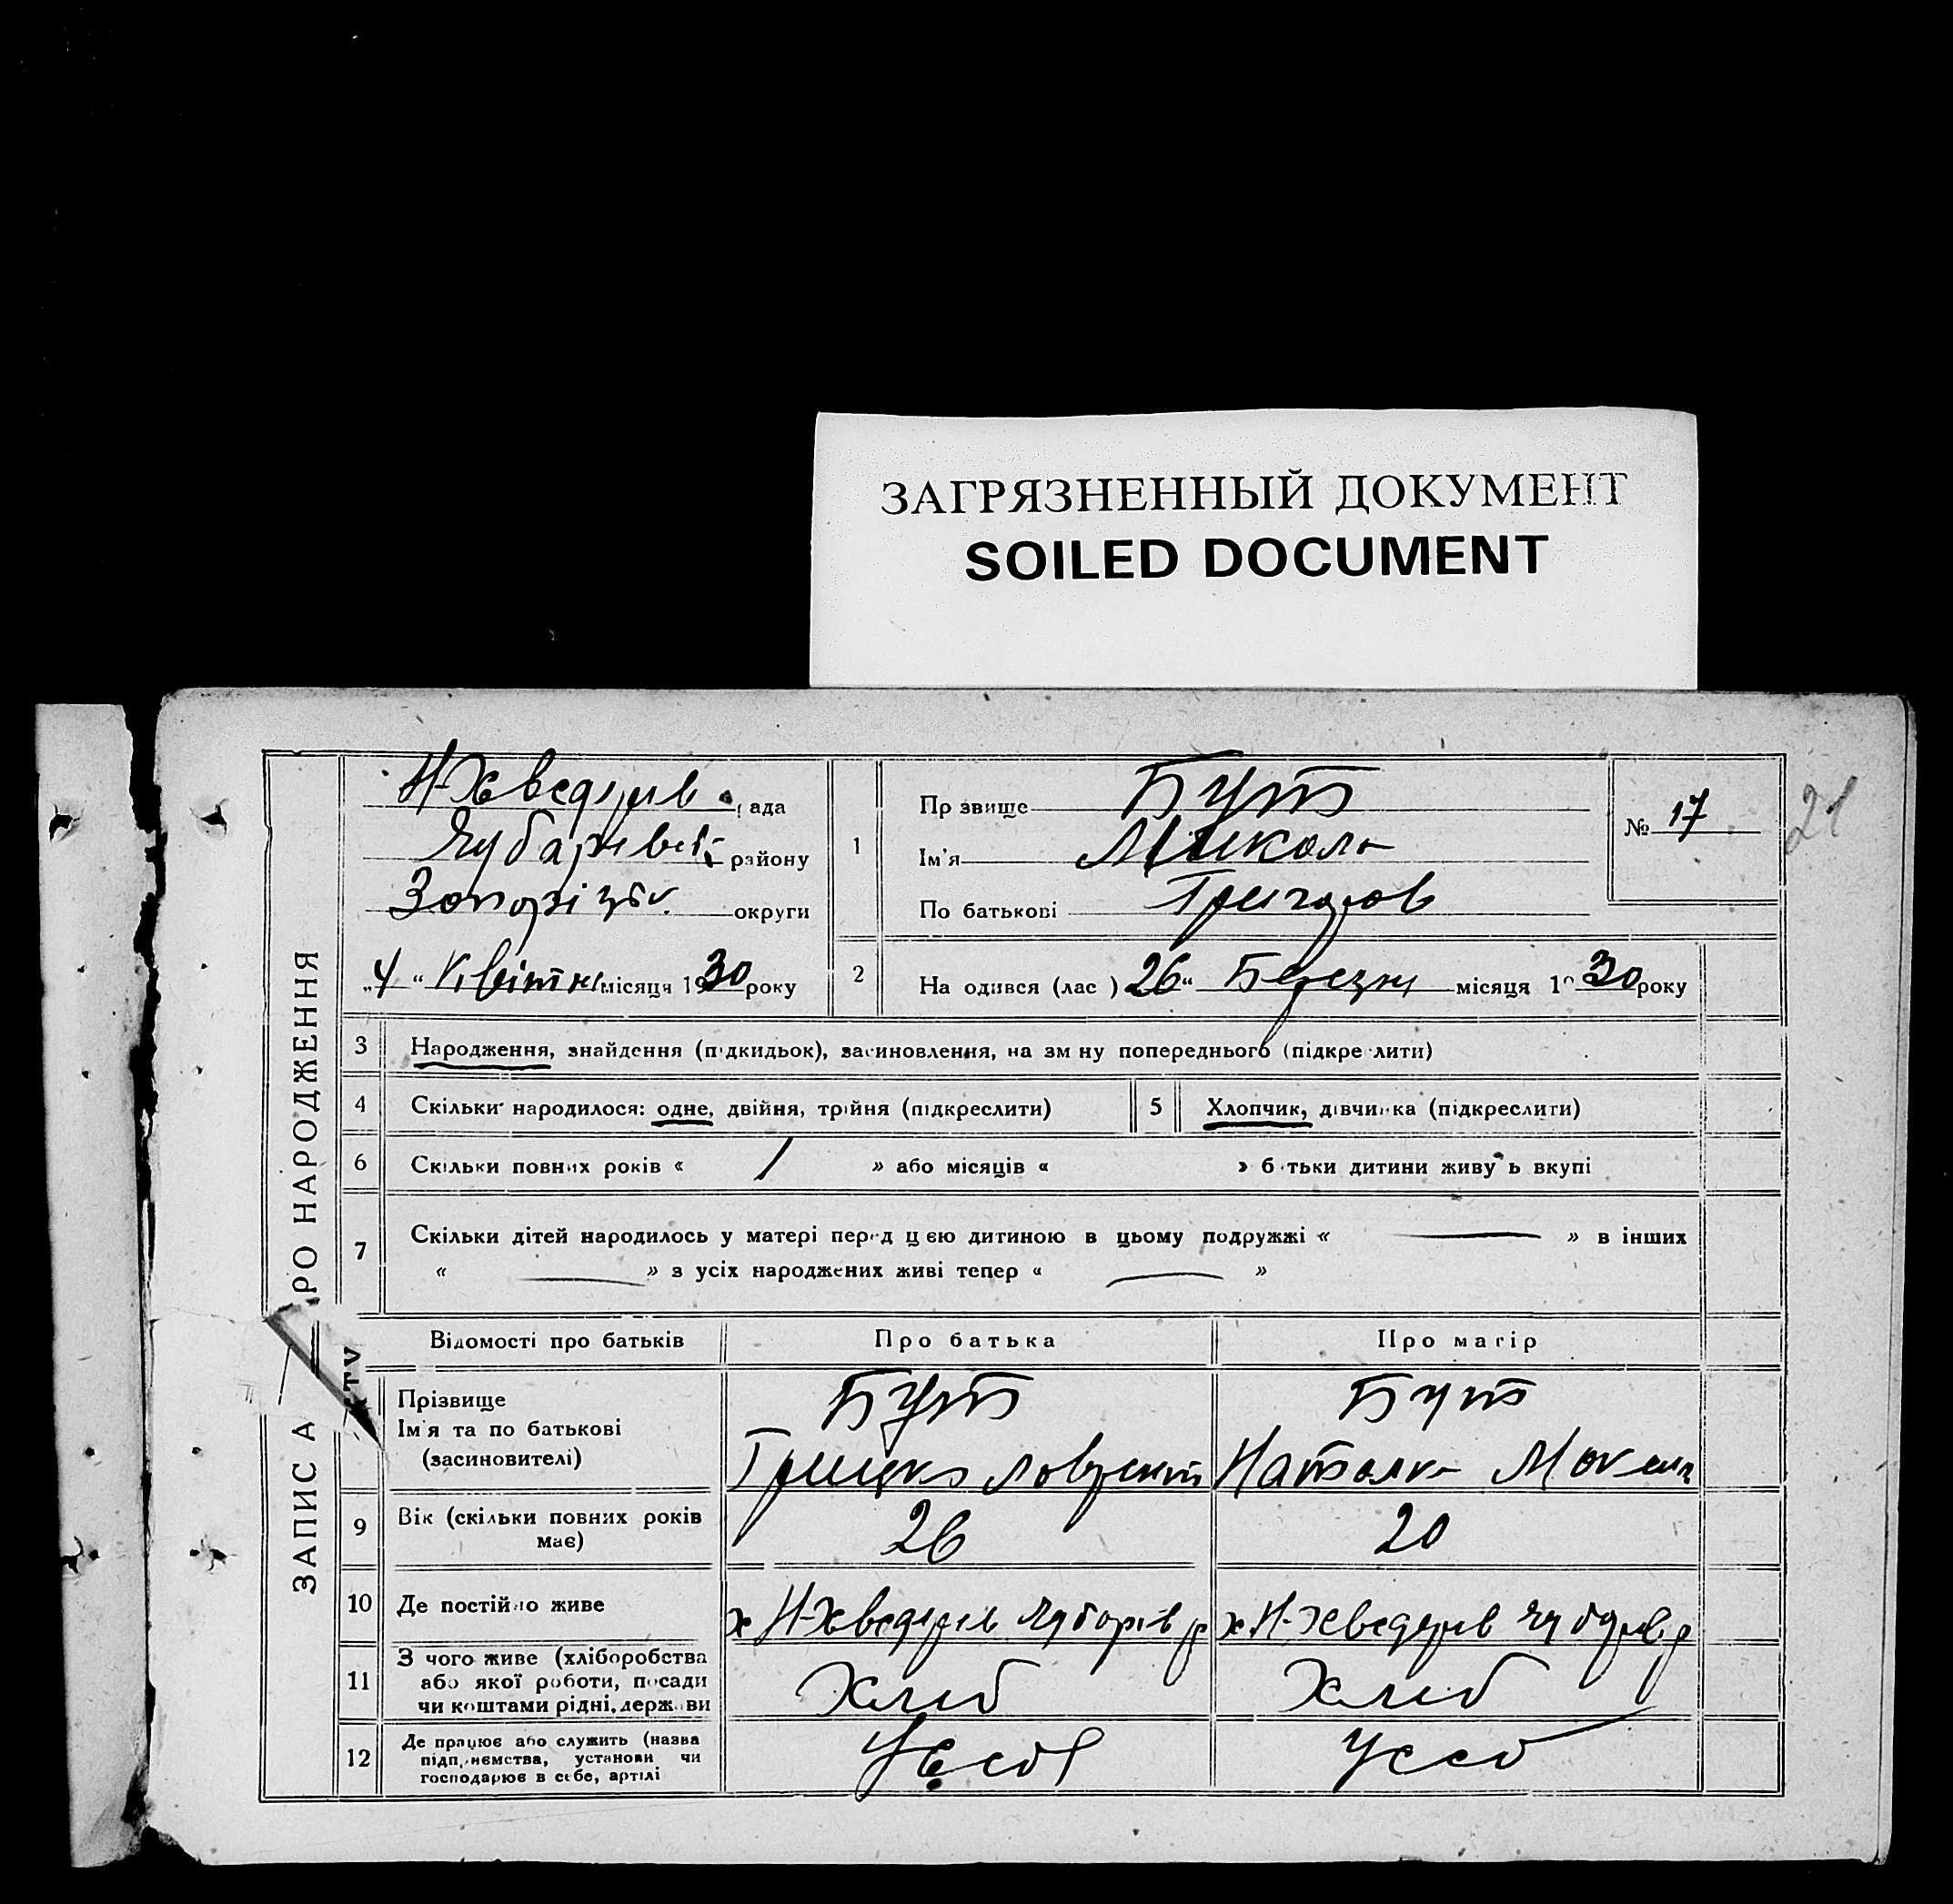 ЗАГРЯЗНЕННЫЙ ДОКУМЕНТ
SOILED DOCUMENT
21
ЗАПИС А РО НАРОДЖЕННЯ
Н-Хведорів ада
Чубарівськ району
Запорізьк. округи
„4“ Квітня місяця 1930 року
1
Пр звище Бут
Ім'я Микола
По батькові Григоров
№ 17
2
На одився (лас ) 26“ Березня місяця 1930 року
3 Народження, знайдення (підкидьок), засиновлення, на зм ну попереднього (підкре лити)
4 Скільки народилося: одне, двійня, трійня (підкреслити)
5 Хлопчик, дівчинка (підкреслити)
6 Скільки повних років « / » або місяців « » б тьки дитини живу ь вкупі
7 Скільки дітей народилось у матері перед цією дитиною в цьому подружжі « — » в інших
« — » з усіх народжених живі тепер « — »
Відомості про батьків Про батька Про матір
Прізвище
Ім'я та по батькові
(засиновителі)
Бут
Грицько Лаврент
Бут
Наталка Моксим
9 Вік (скільки повних років
має)
26 20
10 Де постійно живе х Н-Хведорів Чубарів р х Н-Хведорів Чубарів р
11 З чого живе (хліборобства
або якої роботи, посади
чи коштами рідні, держави
Хліб Хліб
12 Де працює або служить (назва
підприємства, установи чи
господарює в себе, артілі
У себ У себ